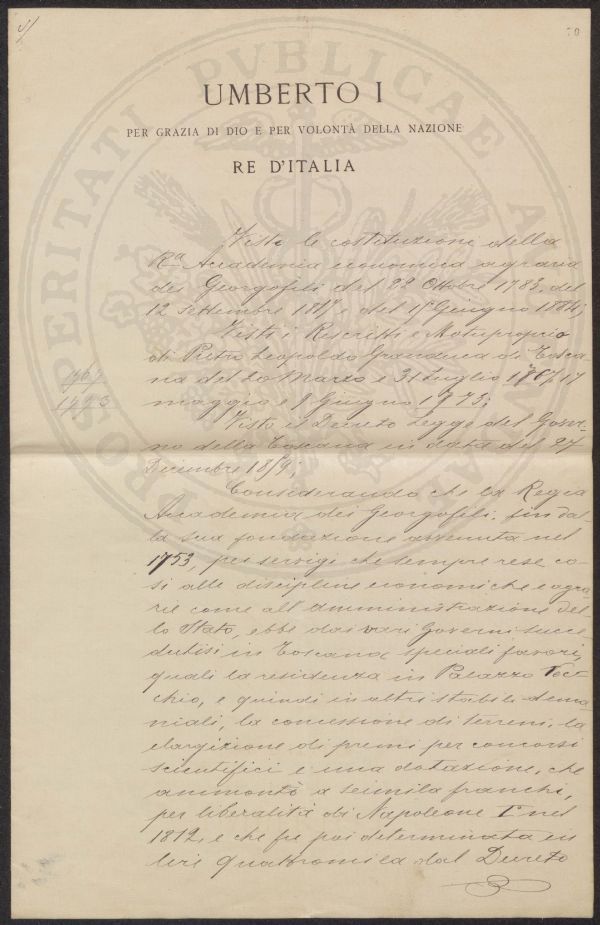 UMBERTO I
PER GRAZIA DI DIO E PER VOLONTÀ DELLA NAZIONE
RE D'ITALIA
Viste le costituzioni della
Ra. Accademia economica agraria
dei Georgofili del 29 Ottobre 1783, del
12 Settembre 1817 e del 1º Giugno 1884;
Visti i Rescritti e Motuproprio
di Pietro Leopoldo Granduca di Tosca-
na del 20 Marzo e 31 Luglio 1767, 17
maggio e 8 Giugno 1773;
1767
1773
Visto il Decreto Legge del Gover-
no della Toscana in data del 27
Dicembre 1859;
Considerando che la Regia
Accademia dei Georgofili, fin dal-
la sua fondazione avvenuta nel
1753, per servigi che sempre rese co-
sì alle discipline economiche e agra-
rie come all'amministrazione del-
lo Stato, ebbe dai vari Governi succe-
dutisi in Toscana speciali favori,
quali la residenza in Palazzo Vec-
chio, e quindi in altri stabili dema-
niali, la concessione di terreni, la
elargizione di premi per concorsi
scientifici e una dotazione, che
ammontò a seimila franchi,
per liberalità di Napoleone Iº nel
1812, e che fu poi determinata in
lire quattromila dal Decreto
PROSPERITATI PUBLICAE AUGENDAE